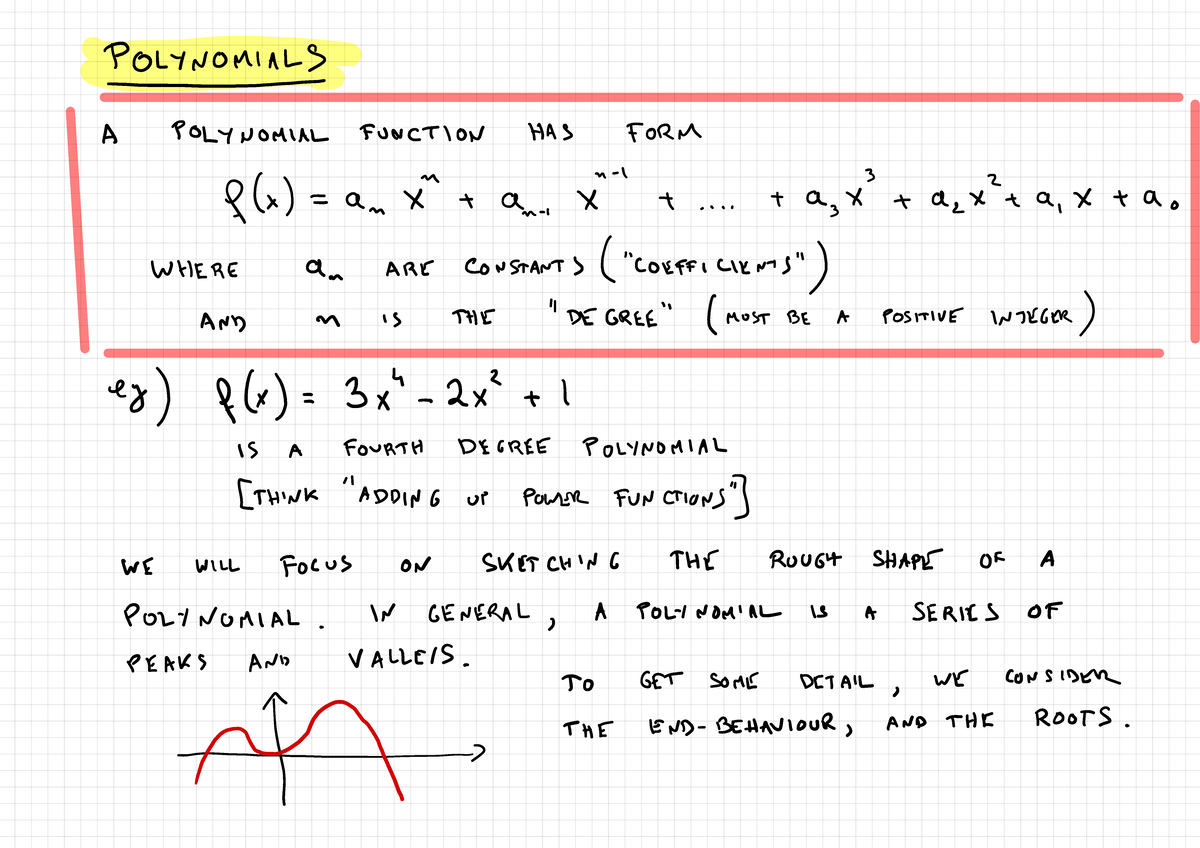 POLYNOMIALS
A POLYNOMIAL FUNCTION HAS FORM
f(x) = aₙ xⁿ + aₙ₋₁ xⁿ⁻¹ + .... + a₃x³ + a₂x² + a₁x + a₀
WHERE aₙ ARE CONSTANTS ("COEFFICIENTS")
AND n IS THE "DEGREE" (MUST BE A POSITIVE INTEGER)
eg) f(x) = 3x⁴ - 2x² + 1
IS A FOURTH DEGREE POLYNOMIAL
[THINK "ADDING UP POWER FUNCTIONS"]
WE WILL FOCUS ON SKETCHING THE ROUGH SHAPE OF A
POLYNOMIAL. IN GENERAL, A POLYNOMIAL IS A SERIES OF
PEAKS AND VALLEYS.
TO GET SOME DETAIL, WE CONSIDER
THE END-BEHAVIOUR, AND THE ROOTS.